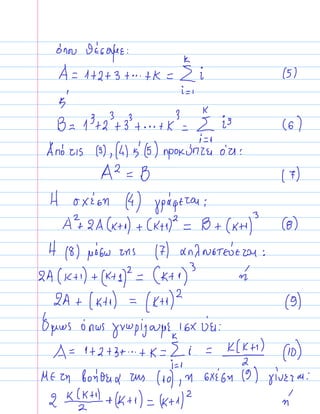 όπου θέσαμε:
A = 1+2+3+···+κ = Σ_{i=1}^{κ} i (5)
ή
B = 1³+2³+3³+···+κ³ = Σ_{i=1}^{κ} i³ (6)
Από τις (3), (4) ή (5) προκύπτει ότι:
A² = B (7)
Η σχέση (4) γράφεται:
A²+2A(κ+1)+(κ+1)² = B+(κ+1)³ (8)
Η (8) μέσω της (7) απλουστεύεται:
2A(κ+1)+(κ+1)² = (κ+1)³ ή
2A + (κ+1) = (κ+1)² (9)
Όμως όπως γνωρίζουμε ισχύει:
A = 1+2+3+···+κ = Σ_{i=1}^{κ} i = κ(κ+1)/2 (10)
Με τη βοήθεια της (10), η σχέση (9) γίνεται:
2 κ(κ+1)/2 +(κ+1) = (κ+1)² ή